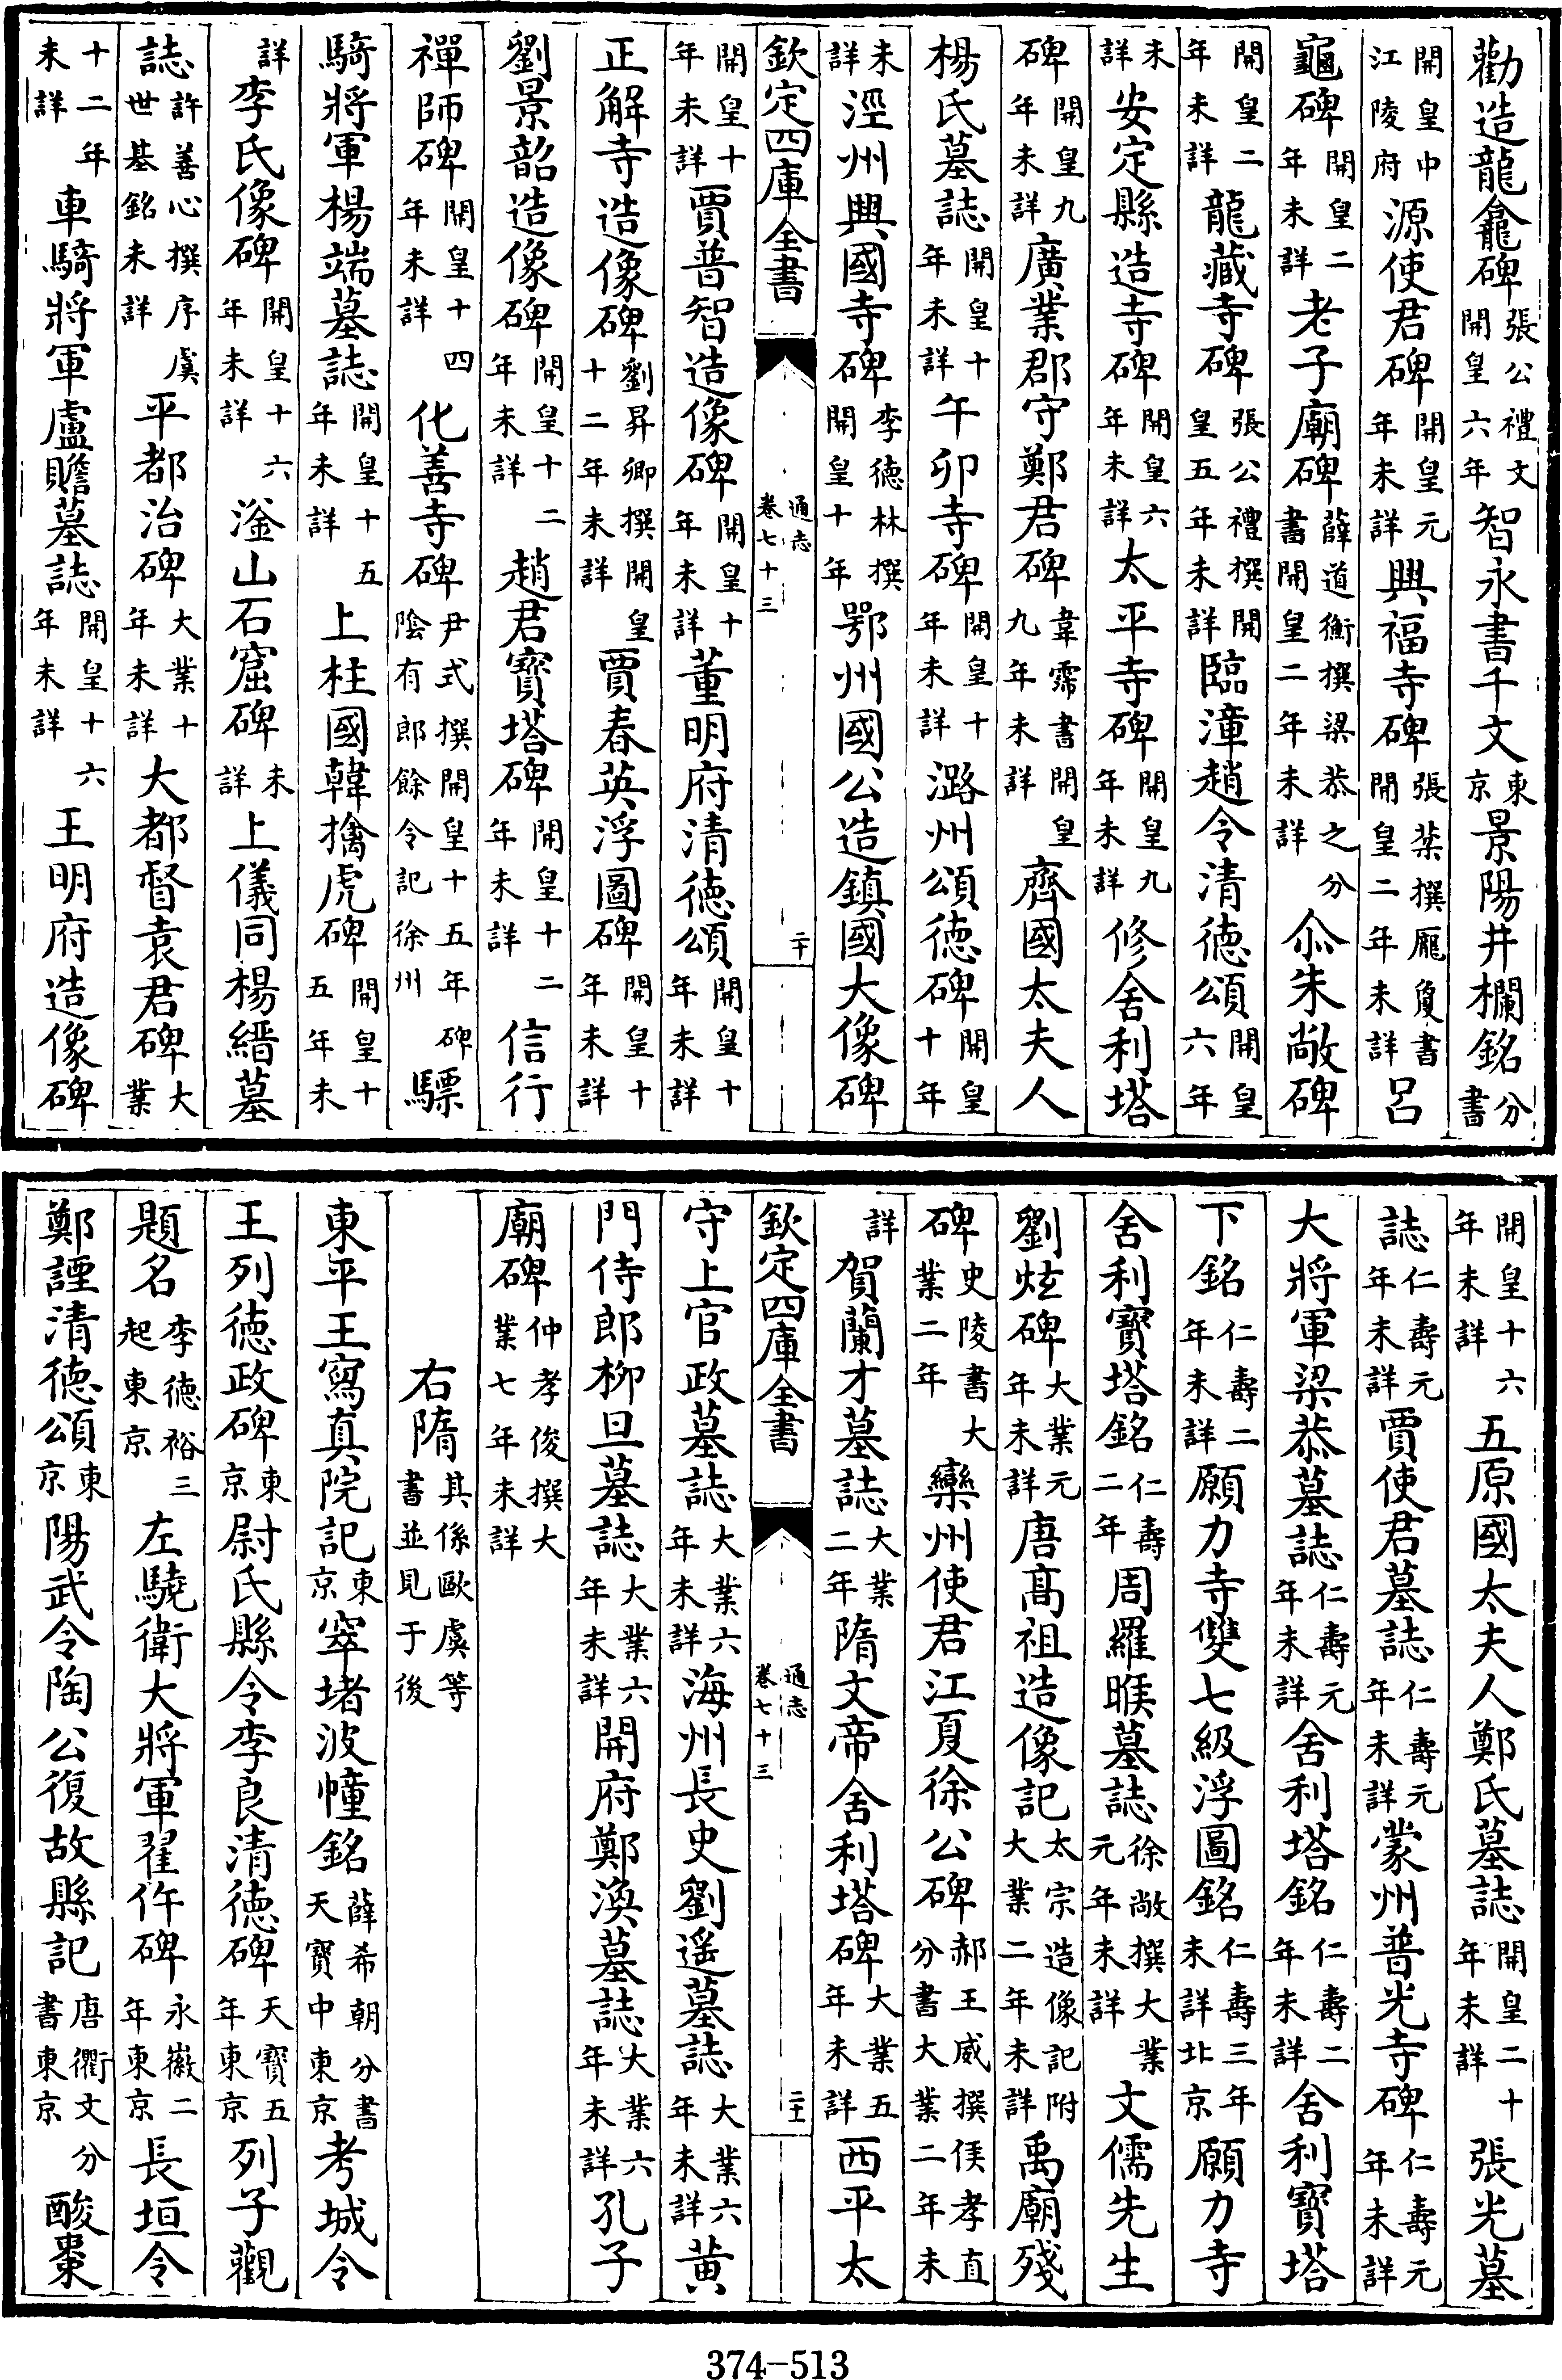 勸造龍龕碑張公禮文開皇六年智永書千文東京景陽井欄銘分書
開皇中江陵府源使君碑開皇元年未詳興福寺碑張棻撰龎夐書開皇二年未詳吕
龜碑開皇二年未詳老子廟碑薛道衡撰梁恭之分書開皇二年未詳尒朱敞碑
開皇二年未詳龍藏寺碑張公禮撰開皇五年未詳臨漳趙令清德頌開皇六年
未詳安定縣造寺碑開皇六年未詳太平寺碑開皇九年未詳修舍利塔
碑開皇九年未詳廣業郡守鄭君碑韋霈書開皇九年未詳齊國太夫人
楊氏墓誌開皇十年未詳午卯寺碑開皇十年未詳潞州頌德碑開皇十年
未詳涇州興國寺碑李德林撰開皇十年鄂州國公造鎮國大像碑
欽定四庫全書 通志卷七十三 二十
開皇十年未詳賈普智造像碑開皇十年未詳董明府清德頌開皇十年未詳
正解寺造像碑劉昇卿撰開皇十二年未詳賈春英浮圖碑開皇十年未詳
劉景韶造像碑開皇十二年未詳趙君寶塔碑開皇十二年未詳信行
禪師碑開皇十四年未詳化善寺碑尹式撰開皇十五年碑陰有郎餘令記徐州驃
騎將軍楊端墓誌開皇十五年未詳上柱國韓擒虎碑開皇十五年未
詳李氏像碑開皇十六年未詳滏山石窟碑未詳上儀同楊縉墓
誌許善心撰序虞世基銘未詳平都治碑大業十年未詳大都督袁君碑大業
十二年未詳車騎將軍盧贍墓誌開皇十六年未詳王明府造像碑
開皇十六年未詳五原國太夫人鄭氏墓誌開皇二十年未詳張光墓
誌仁壽元年未詳賈使君墓誌仁壽元年未詳蒙州普光寺碑仁壽元年未詳
大將軍梁恭墓誌仁壽元年未詳舍利塔銘仁壽二年未詳舍利寶塔
下銘仁壽二年未詳願力寺雙七級浮圖銘仁壽三年未詳北京願力寺
舍利寶塔銘仁壽二年周羅睺墓誌徐敞撰大業元年未詳文儒先生
劉炫碑大業元年未詳唐髙祖造像記太宗造像記附大業二年未詳禹廟殘
碑史陵書大業二年欒州使君江夏徐公碑郝王威撰侯孝直分書大業二年未
詳賀蘭才墓誌大業二年隋文帝舍利塔碑大業五年未詳西平太
欽定四庫全書 通志卷七十三 二十一
守上官政墓誌大業六年未詳海州長史劉遥墓誌大業六年未詳黄
門侍郎柳旦墓誌大業六年未詳開府鄭渙墓誌大業六年未詳孔子
廟碑仲孝俊撰大業七年未詳
右隋其係歐虞等書並見于後
東平王寫真院記東京窣堵波幢銘薛希朝分書天寶中東京考城令
王列德政碑東京尉氏縣令李良清德碑天寶五年東京列子觀
題名李德裕三起東京左驍衛大將軍翟仵碑永徽二年東京長垣令
鄭諲清德頌東京陽武令陶公復故縣記唐衢文分書東京酸棗
374-513